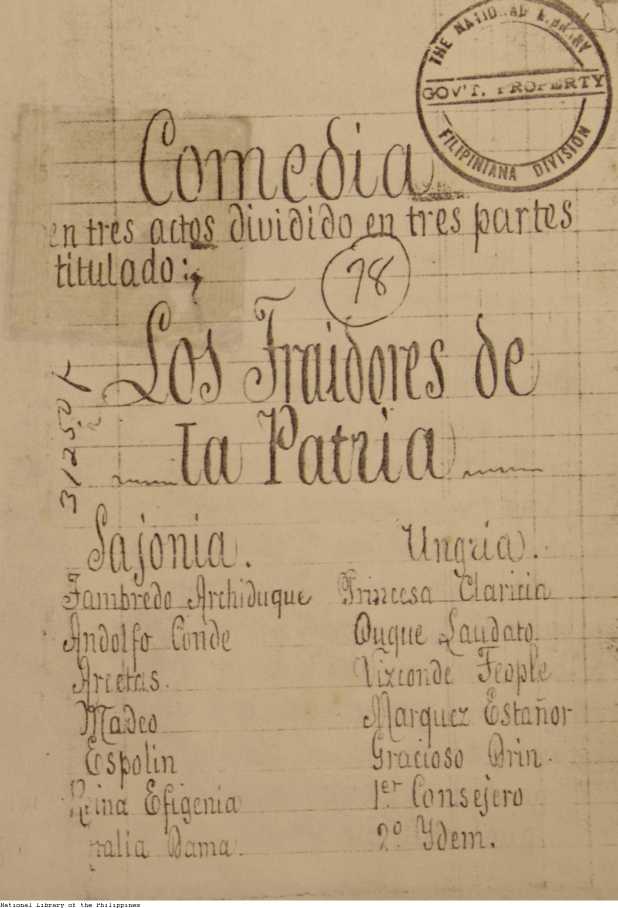 THE NATIONAL LIBRARY
GOV'T. PROPERTY
FILIPINIANA DIVISION
Comedia
en tres actos dividido en tres partes
titulado:
78
Los Traidores de
la Patria
31250
Sajonia.
Tambredo Archiduque
Andolfo Conde
Arcetas.
Madeo
Espolin
Reina Efigenia
Dama.
Ungria.
Princesa Claricia
Duque Laudato.
Vizconde Teople
Marquez Estañor
Gracioso Brin.
1er Consejero
2º Ydem.
National Library of the Philippines